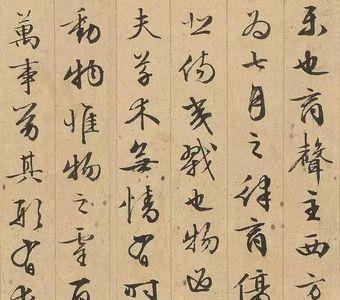 樂也商聲主西方
為七月之律商傷
悲傷夷戮也物過
夫草木無情有時
動物惟物之靈百
萬事勞其形有